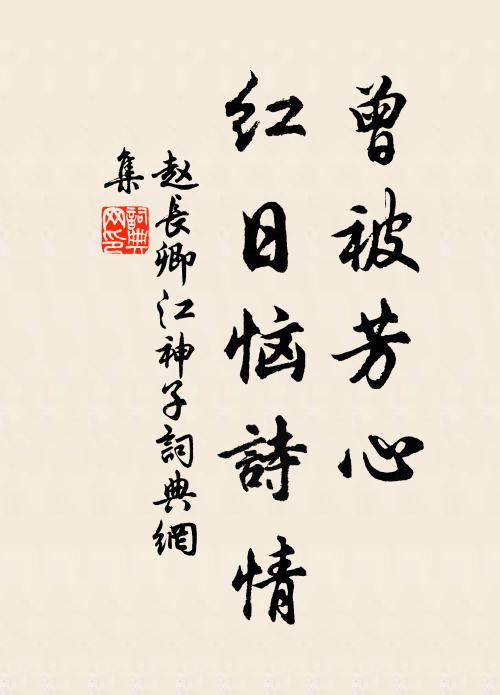 曾被芳心
红日恼詩情
赵長卿江神子詞典網
集
詞典网印